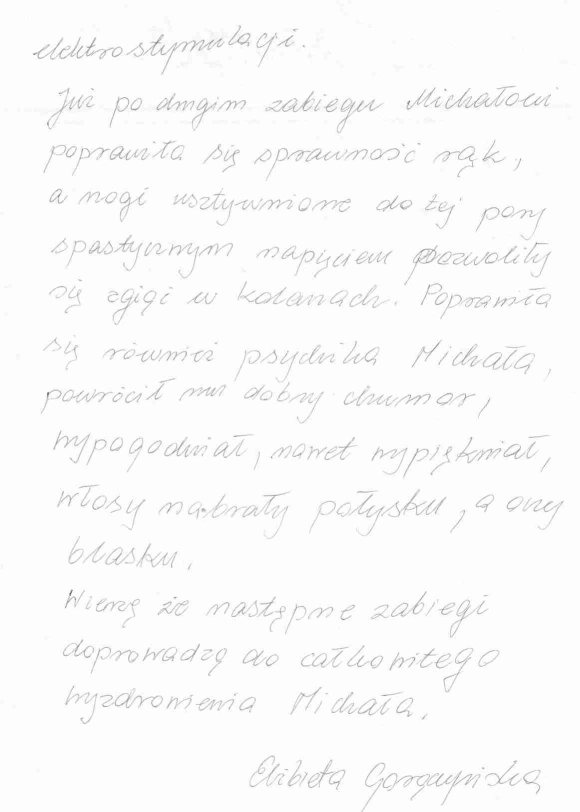 elektrostymulacji.
Już po drugim zabiegu Michałowi
poprawiła się sprawność rąk,
a nogi usztywnione do tej pory
spastycznym napięciem pozwoliły
się zgiąć w kolanach. Poprawiła
się również psychika Michała,
powrócił mu dobry chumor,
wypogodniał, nawet wypiękniał,
włosy nabrały połysku, a oczy
blasku.
Wierzę że następne zabiegi
doprowadzą do całkowitego
wyzdrowienia Michała.
Elżbieta